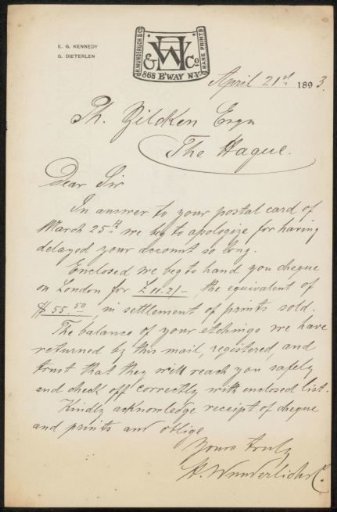 E. G. KENNEDY
G. DIETERLEN
H. WUNDERLICH & CO
RARE PRINTS
868 B'WAY N.Y.
April 21st 1893.
Ph. Zilcken Esqr
The Hague.
Dear Sir
In answer to your postal card of
March 25th we beg to apologize for having
delayed your account so long.
Enclosed we beg to hand you cheque
on London for £11.2/-, the equivalent of
$55.50, in settlement of prints sold.
The balance of your etchings we have
returned by this mail, registered, and
trust that they will reach you safely
and check off correctly with enclosed list.
Kindly acknowledge receipt of cheque
and prints and oblige
Yours truly
H. Wunderlich & Co.